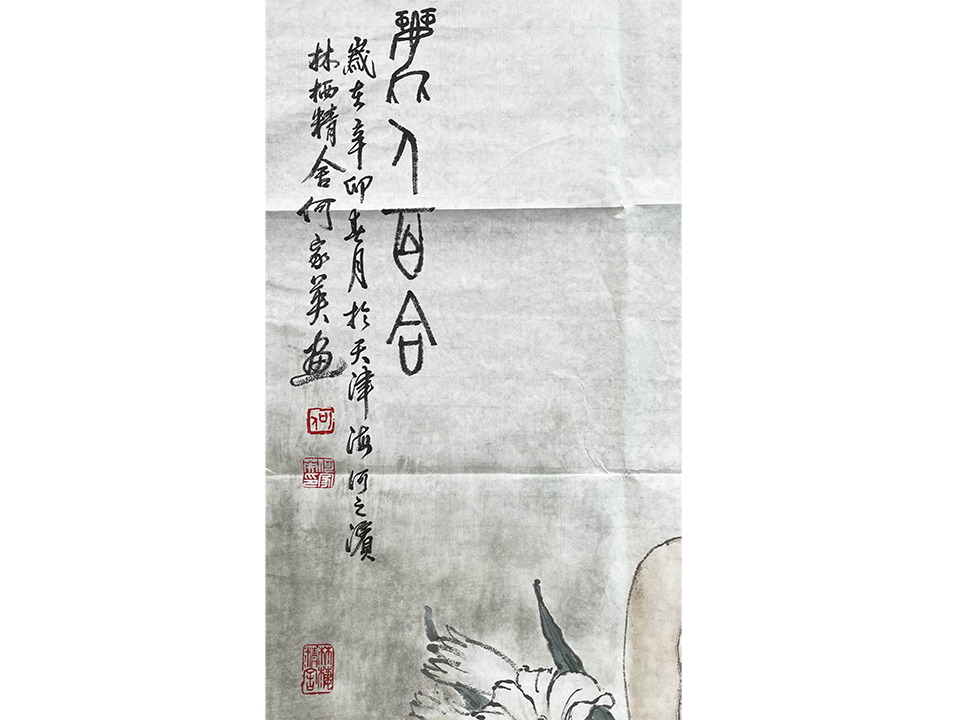 麗人百合
歲在辛卯春月於天津海河之濱
林栖精舍何家英畫
何